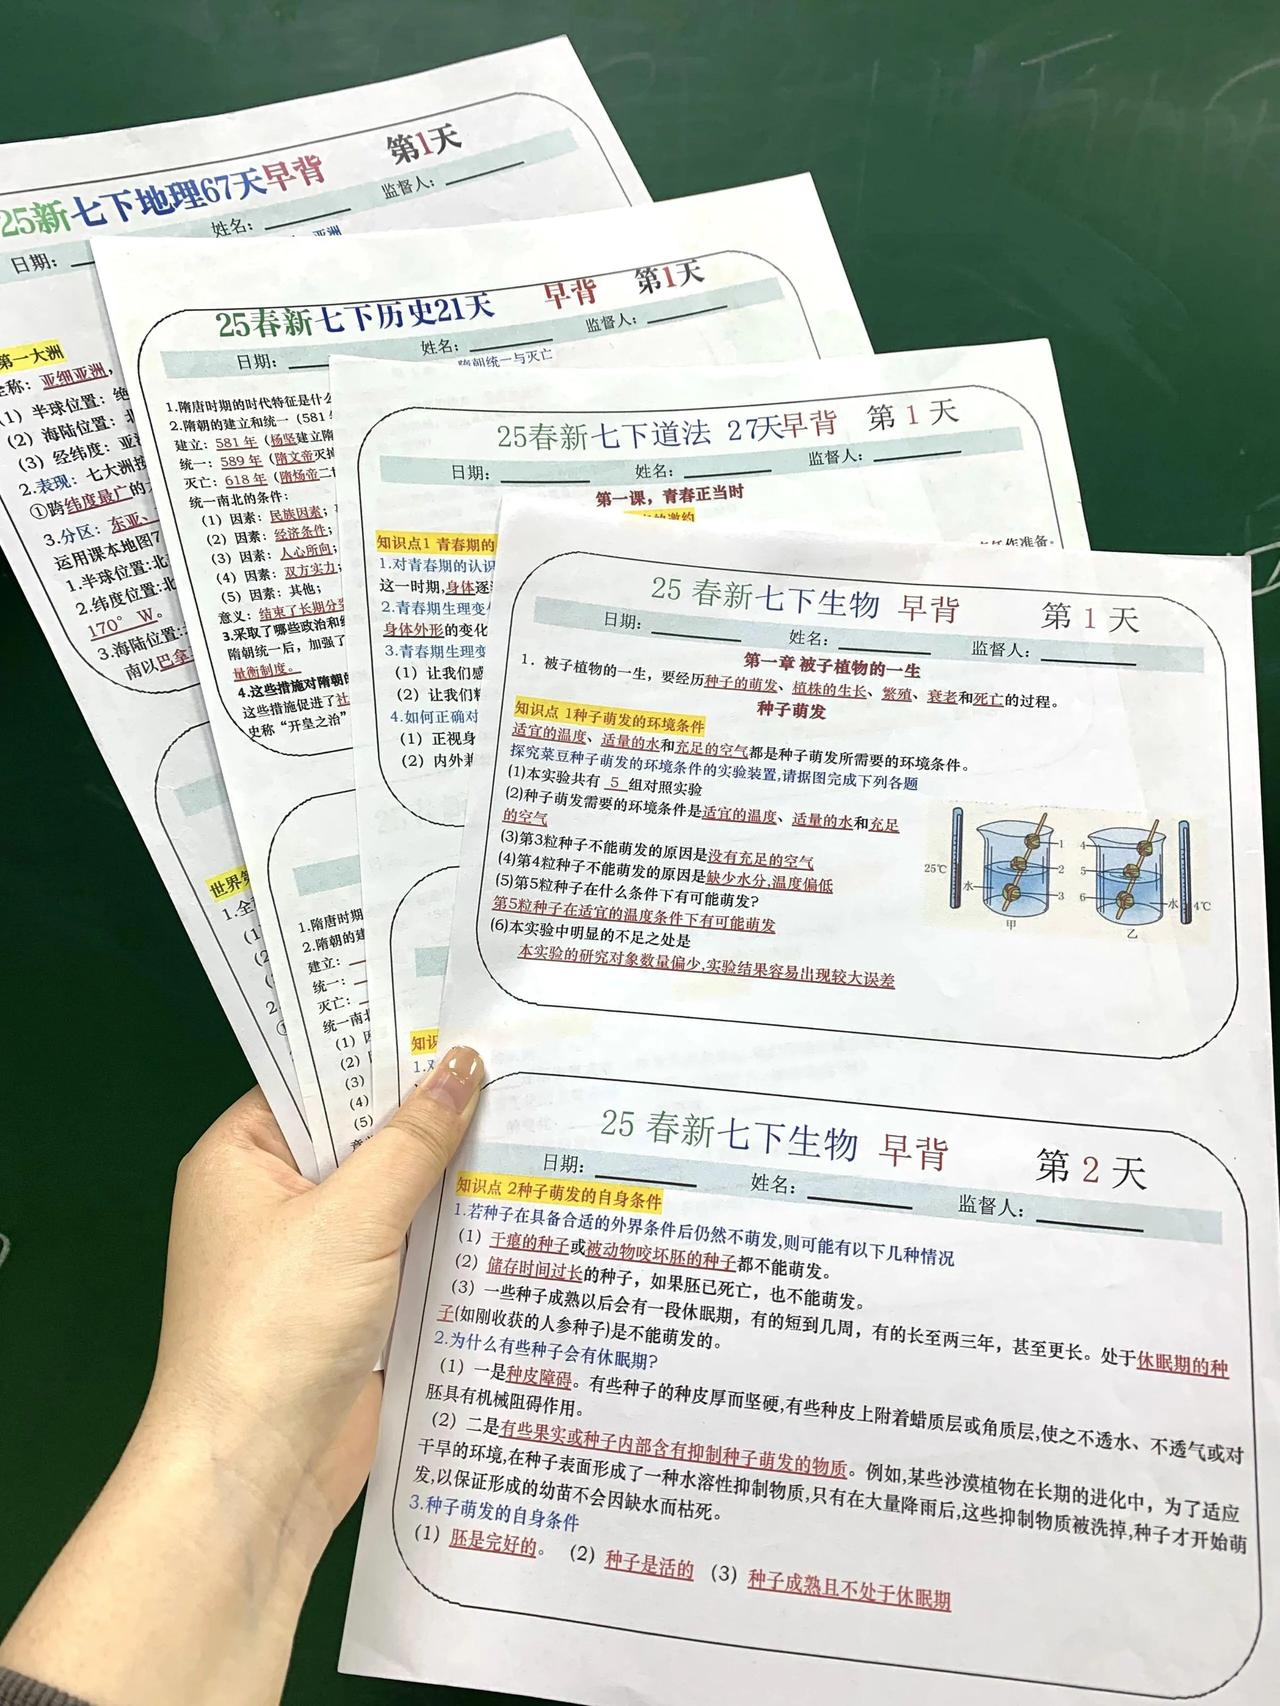 25新七下地理67天早背 第1天
日期： 姓名： 监督人：
亚洲
第一大洲
全称：亚细亚洲，
（1）半球位置：绝
（2）海陆位置：北
（3）经纬度：亚
2.表现：七大洲按
①跨纬度最广的
3.分区：东亚、
运用课本地图7
1.半球位置:北
2.纬度位置:北
170° W。
3.海陆位置:
南以巴拿
世界第
1.全
25春新七下历史21天 早背 第1天
日期： 姓名： 监督人：
隋朝统一与灭亡
1.隋唐时期的时代特征是什么
2.隋朝的建立和统一（581
建立：581 年（杨坚建立隋
统一：589 年（隋文帝灭掉
灭亡：618 年（隋炀帝二
统一南北的条件：
（1）因素：民族因素；
（2）因素：经济条件；
（3）因素：人心所向；
（4）因素：双方实力
（5）因素：其他；
意义：结束了长期分裂
3.采取了哪些政治和经
隋朝统一后，加强了
量衡制度。
4.这些措施对隋朝的
这些措施促进了社
史称“开皇之治”
1.隋唐时期
2.隋朝的建
建立：
统一：
灭亡：
统一南北
（1）因
（2）
（3）
（4）
（5）
25春新七下道法 27天早背 第1天
日期： 姓名： 监督人：
第一课，青春正当时
的邀约
作准备。
知识点1 青春期的
1.对青春期的认识
这一时期,身体逐
2.青春期生理变化
身体外形的变化
3.青春期生理变
（1）让我们感
（2）让我们精
4.如何正确对
（1）正视身
（2）内外兼
知识
1.对
25 春新七下生物 早背 第 1 天
日期： 姓名： 监督人：
第一章 被子植物的一生
1．被子植物的一生，要经历种子的萌发、植株的生长、繁殖、衰老和死亡的过程。
种子萌发
知识点 1种子萌发的环境条件
适宜的温度、适量的水和充足的空气都是种子萌发所需要的环境条件。
探究菜豆种子萌发的环境条件的实验装置,请据图完成下列各题
(1)本实验共有 5 组对照实验
(2)种子萌发需要的环境条件是适宜的温度、适量的水和充足
的空气
(3)第3粒种子不能萌发的原因是没有充足的空气
(4)第4粒种子不能萌发的原因是缺少水分,温度偏低
(5)第5粒种子在什么条件下有可能萌发?
第5粒种子在适宜的温度条件下有可能萌发
(6)本实验中明显的不足之处是
本实验的研究对象数量偏少,实验结果容易出现较大误差
25℃ 水 1 2 3 甲
4 5 6 水 4℃ 乙
25 春新七下生物 早背 第 2 天
日期： 姓名： 监督人：
知识点 2种子萌发的自身条件
1.若种子在具备合适的外界条件后仍然不萌发,则可能有以下几种情况
（1）干瘪的种子或被动物咬坏胚的种子都不能萌发。
（2）储存时间过长的种子，如果胚已死亡，也不能萌发。
（3）一些种子成熟以后会有一段休眠期，有的短到几周，有的长至两三年，甚至更长。处于休眠期的种
子(如刚收获的人参种子)是不能萌发的。
2.为什么有些种子会有休眠期?
（1）一是种皮障碍。有些种子的种皮厚而坚硬,有些种皮上附着蜡质层或角质层,使之不透水、不透气或对
胚具有机械阻碍作用。
（2）二是有些果实或种子内部含有抑制种子萌发的物质。例如,某些沙漠植物在长期的进化中，为了适应
干旱的环境,在种子表面形成了一种水溶性抑制物质,只有在大量降雨后,这些抑制物质被洗掉,种子才开始萌
发,以保证形成的幼苗不会因缺水而枯死。
3.种子萌发的自身条件
（1）胚是完好的。（2）种子是活的 （3）种子成熟且不处于休眠期